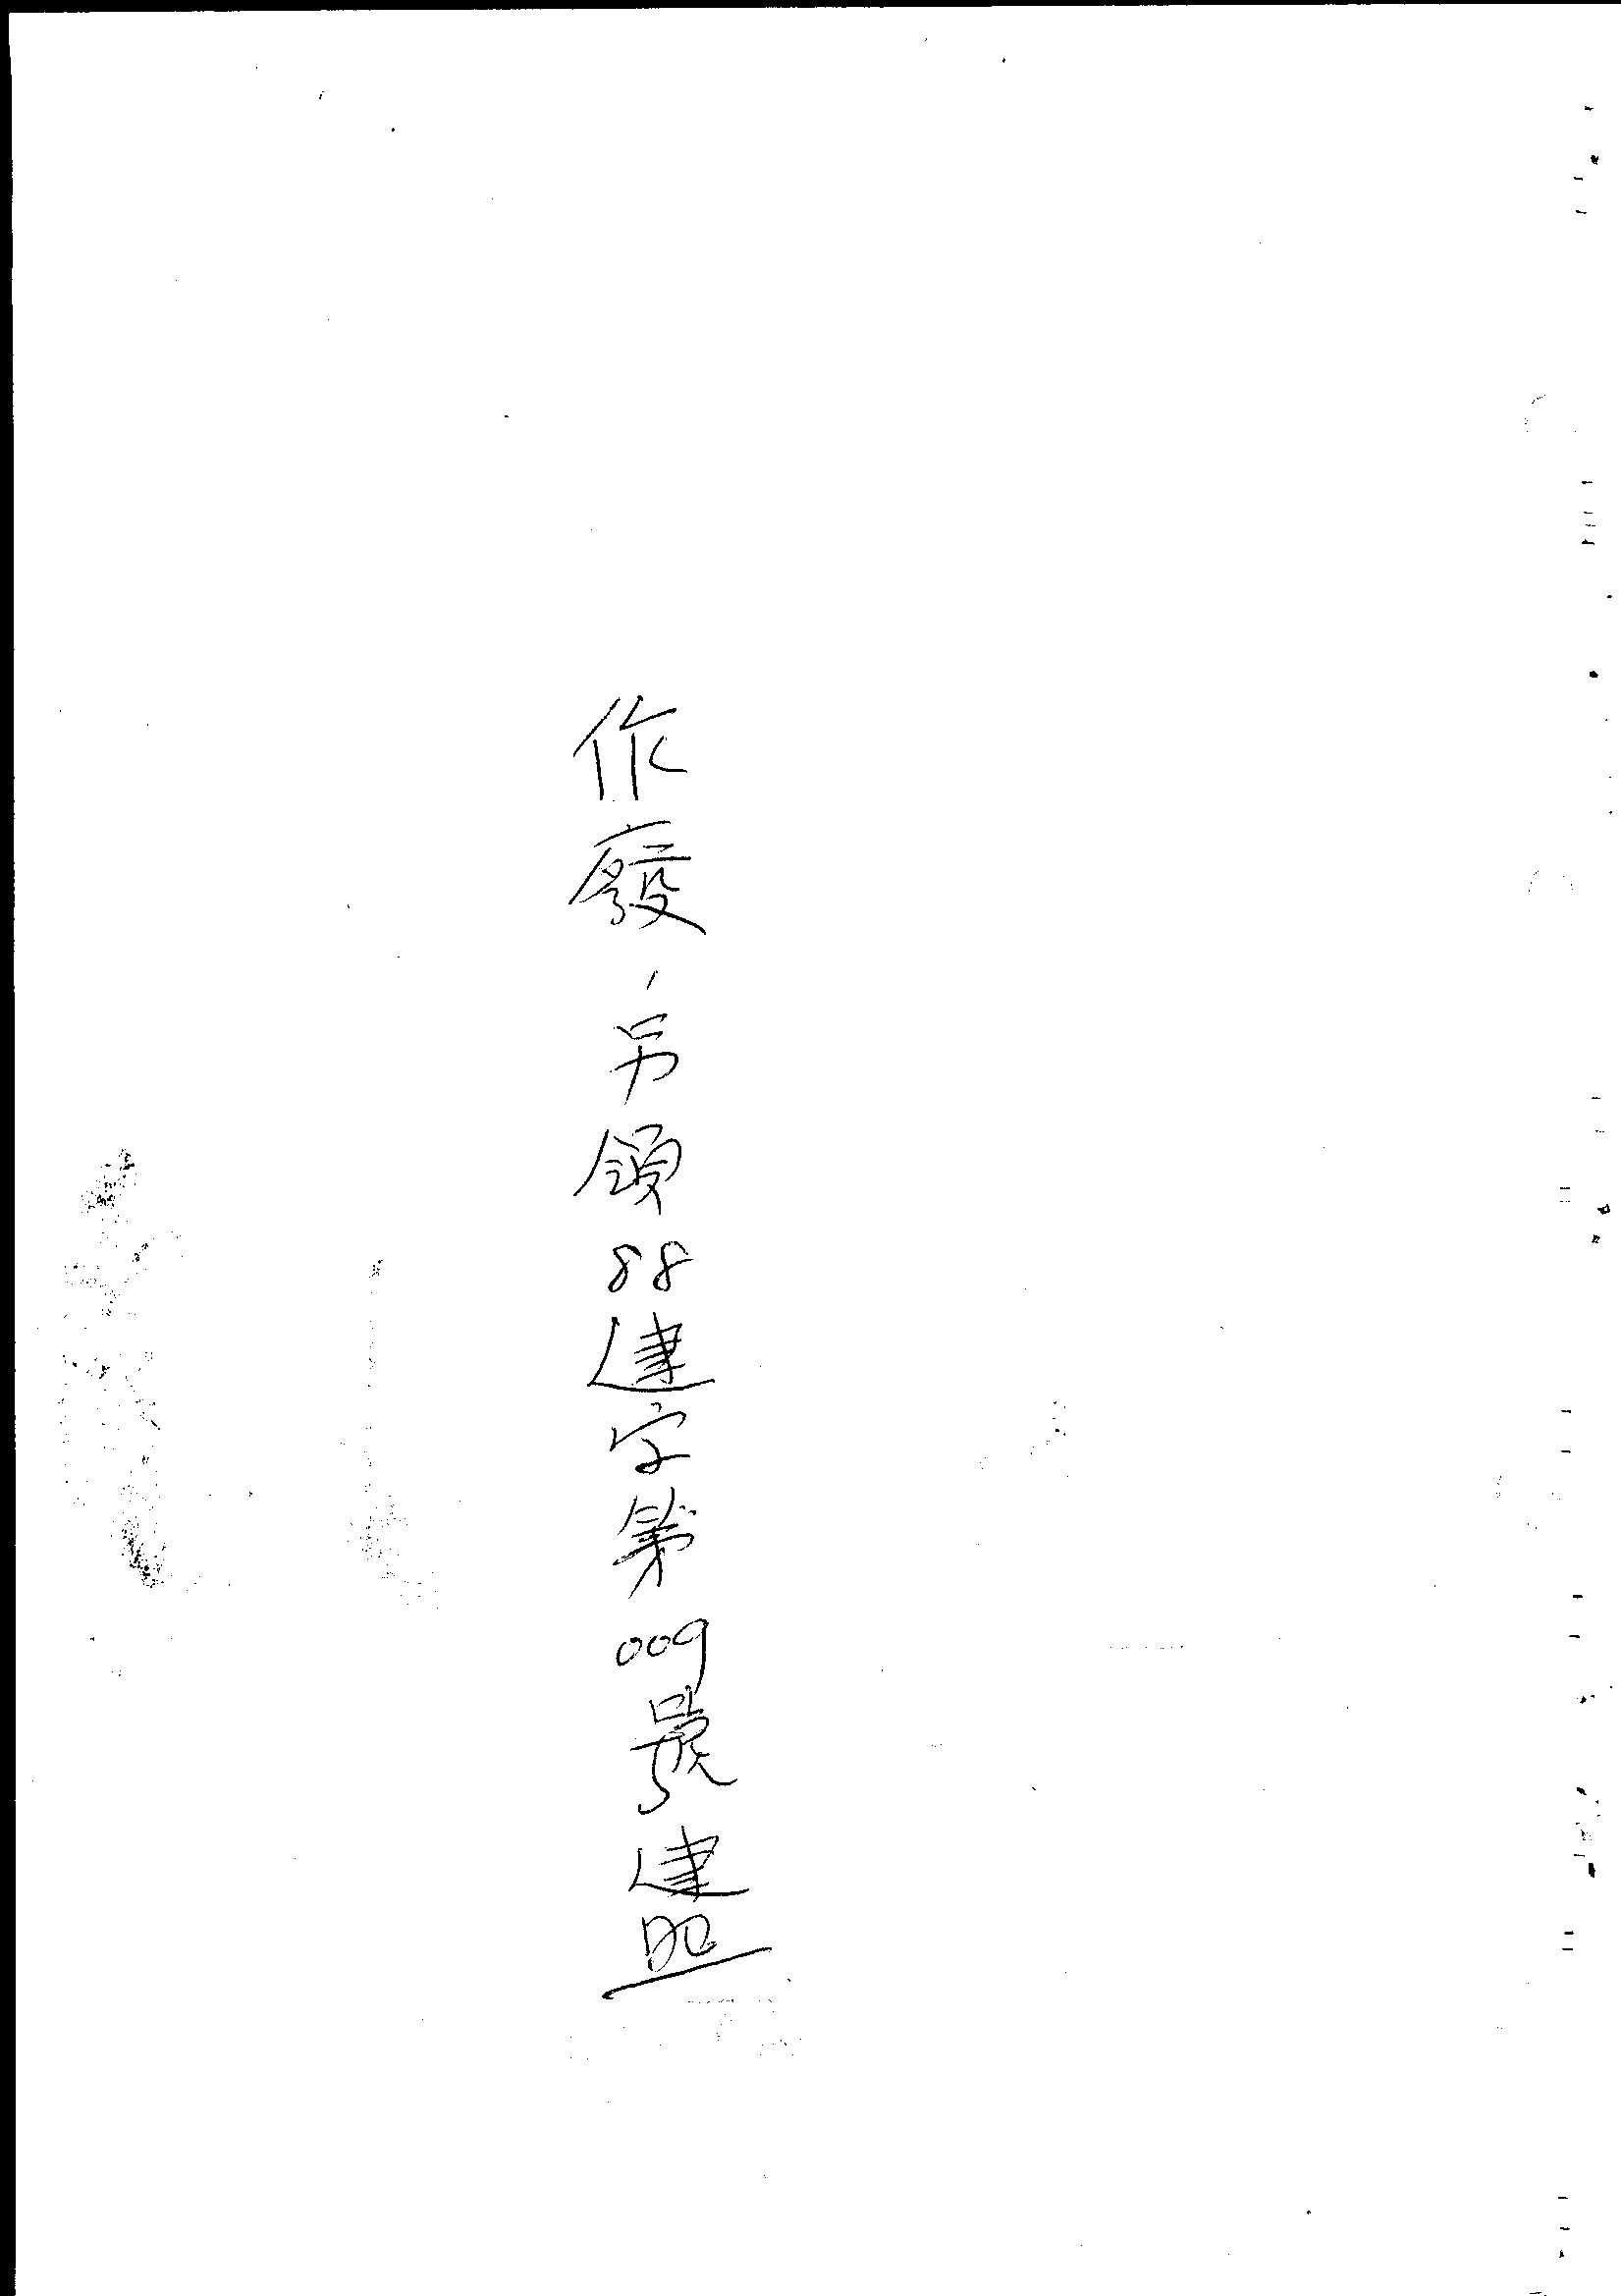 作廢、另領88建字第009號建照